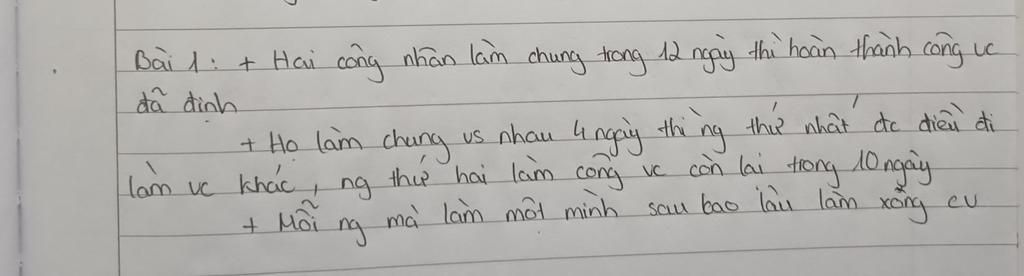 Bài 1: + Hai công nhân làm chung trong 12 ngày thì hoàn thành công vc
đã định
+ Họ làm chung vs nhau 4 ngày thì ng thứ nhất đc điều đi
làm vc khác, ng thứ hai làm công vc còn lại trong 10 ngày
+ Mỗi ng mà làm một mình sau bao lâu làm xong cv